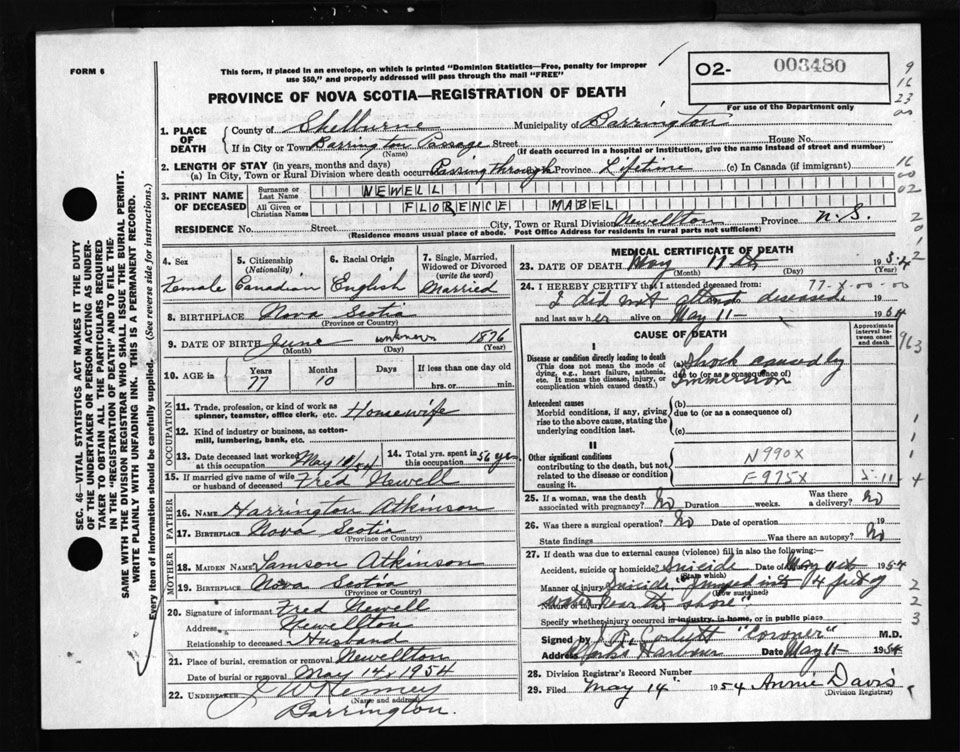 FORM 6
This form, if placed in an envelope, on which is printed "Dominion Statistics—Free, penalty for improper
use $50," and properly addressed will pass through the mail "FREE"
02- 003480
For use of the Department only
PROVINCE OF NOVA SCOTIA—REGISTRATION OF DEATH
9
16
23
00
1. PLACE OF DEATH
County of Shelburne Municipality of Barrington
If in City or Town Barrington Passage Street House No.
(Name) (If death occurred in a hospital or institution, give the name instead of street and number)
2. LENGTH OF STAY (in years, months and days)
(a) In City, Town or Rural Division where death occurred Passing through Province Lifetime (c) In Canada (if immigrant)
16
00
02
3. PRINT NAME OF DECEASED
Surname or Last Name NEWELL
All Given or Christian Names FLORENCE MABEL
RESIDENCE No. Street City, Town or Rural Division Newellton Province N.S.
(Residence means usual place of abode. Post Office Address for residents in rural parts not sufficient)
2
0
1
2
4. Sex
Female
5. Citizenship
(Nationality)
Canadian
6. Racial Origin
English
7. Single, Married, Widowed or Divorced
(write the word)
Married
8. BIRTHPLACE Nova Scotia
(Province or Country)
9. DATE OF BIRTH June unknown 1876
(Month) (Day) (Year)
10. AGE in
Years 77
Months 10
Days
If less than one day old
hrs. or min.
OCCUPATION
11. Trade, profession, or kind of work as
spinner, teamster, office clerk, etc. Homewife
12. Kind of industry or business, as cotton-
mill, lumbering, bank, etc.
13. Date deceased last worked
at this occupation May 10/54
14. Total yrs. spent in
this occupation 56 yrs
15. If married give name of wife
or husband of deceased Fred Newell
FATHER
16. NAME Harrington Atkinson
17. BIRTHPLACE Nova Scotia
(Province or Country)
MOTHER
18. MAIDEN NAME Samson Atkinson
19. BIRTHPLACE Nova Scotia
(Province or Country)
20. Signature of informant Fred Newell
Address Newellton
Relationship to deceased Husband
21. Place of burial, cremation or removal Newellton
Date of burial or removal May 14 1954
22. UNDERTAKER J W Kenney
(Name and address)
Barrington.
MEDICAL CERTIFICATE OF DEATH
23. DATE OF DEATH May 11 th 1954
(Month) (Day)
24. I HEREBY CERTIFY that I attended deceased from: 77-X-00-00
I did not attend deceased 19
and last saw her alive on May 11- 1954
CAUSE OF DEATH
Approximate interval between onset and death
963
I
Disease or condition directly leading to death
(This does not mean the mode of
dying, e.g., heart failure, asthenia,
etc. It means the disease, injury, or
complication which caused death.)
(a) Shock caused by
due to (or as a consequence of)
Immersion
Antecedent causes
Morbid conditions, if any, giving
rise to the above cause, stating the
underlying condition last.
(b)
due to (or as a consequence of)
(c)
II
Other significant conditions
contributing to the death, but not
related to the disease or condition
causing it.
N990X
E975X 5-11
1
1
1
4
25. If a woman, was the death
associated with pregnancy? No Duration weeks. Was there a delivery? No
26. Was there a surgical operation? No Date of operation 19
State findings Was there an autopsy? No
27. If death was due to external causes (violence) fill in also the following:
Accident, suicide or homicide? Suicide Date of injury May 11th 1954
(State which)
Manner of injury Suicide "Jumped into 4 feet of
(How sustained)
Nature of injury water near the shore"
Specify whether injury occurred in industry, in home, or in public place
2
2
3
Signed by "Coroner" M.D.
Address Harbour Date May 11 1954
28. Division Registrar's Record Number
29. Filed May 14 1954 Annie Davis
(Division Registrar)
SEC. 46—VITAL STATISTICS ACT MAKES IT THE DUTY
OF THE UNDERTAKER OR PERSON ACTING AS UNDER-
TAKER TO OBTAIN ALL THE PARTICULARS REQUIRED
IN THE "REGISTRATION OF DEATH" AND TO FILE THE
SAME WITH THE DIVISION REGISTRAR WHO SHALL ISSUE THE BURIAL PERMIT.
WRITE PLAINLY WITH UNFADING INK. THIS IS A PERMANENT RECORD.
Every item of information should be carefully supplied. (See reverse side for instructions.)